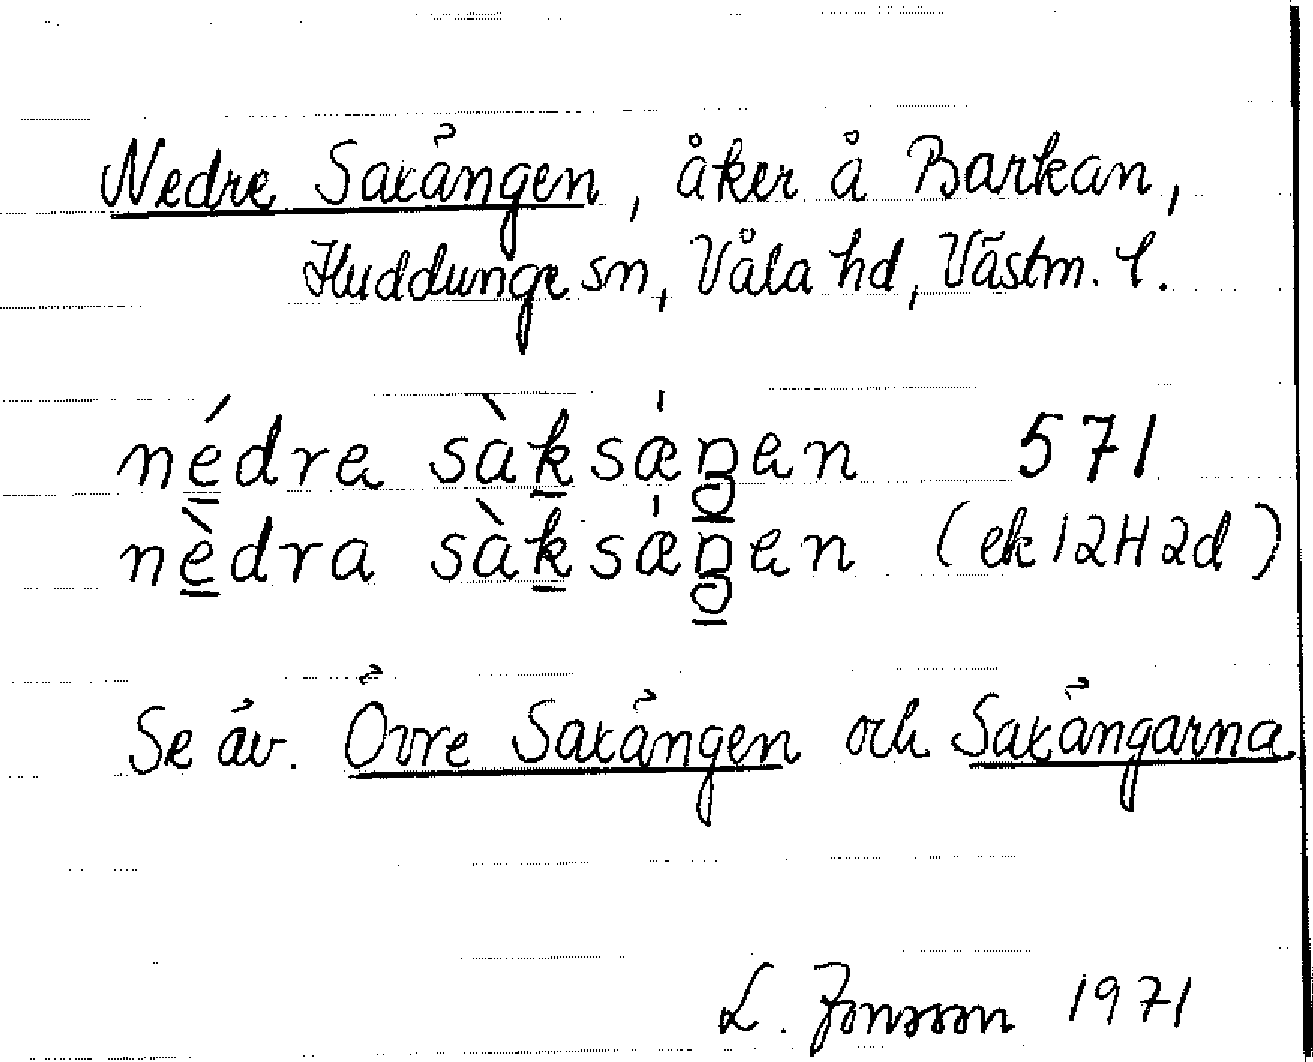 Nedre Saxängen, åker å Barkan,
Huddunge sn, Våla hd, Västm. l.
nédre sàksæŋen 571
nèdra sàksæŋen (ek 12H2d)
Se äv. Övre Saxängen och Saxängarna
L. Jonsson 1971